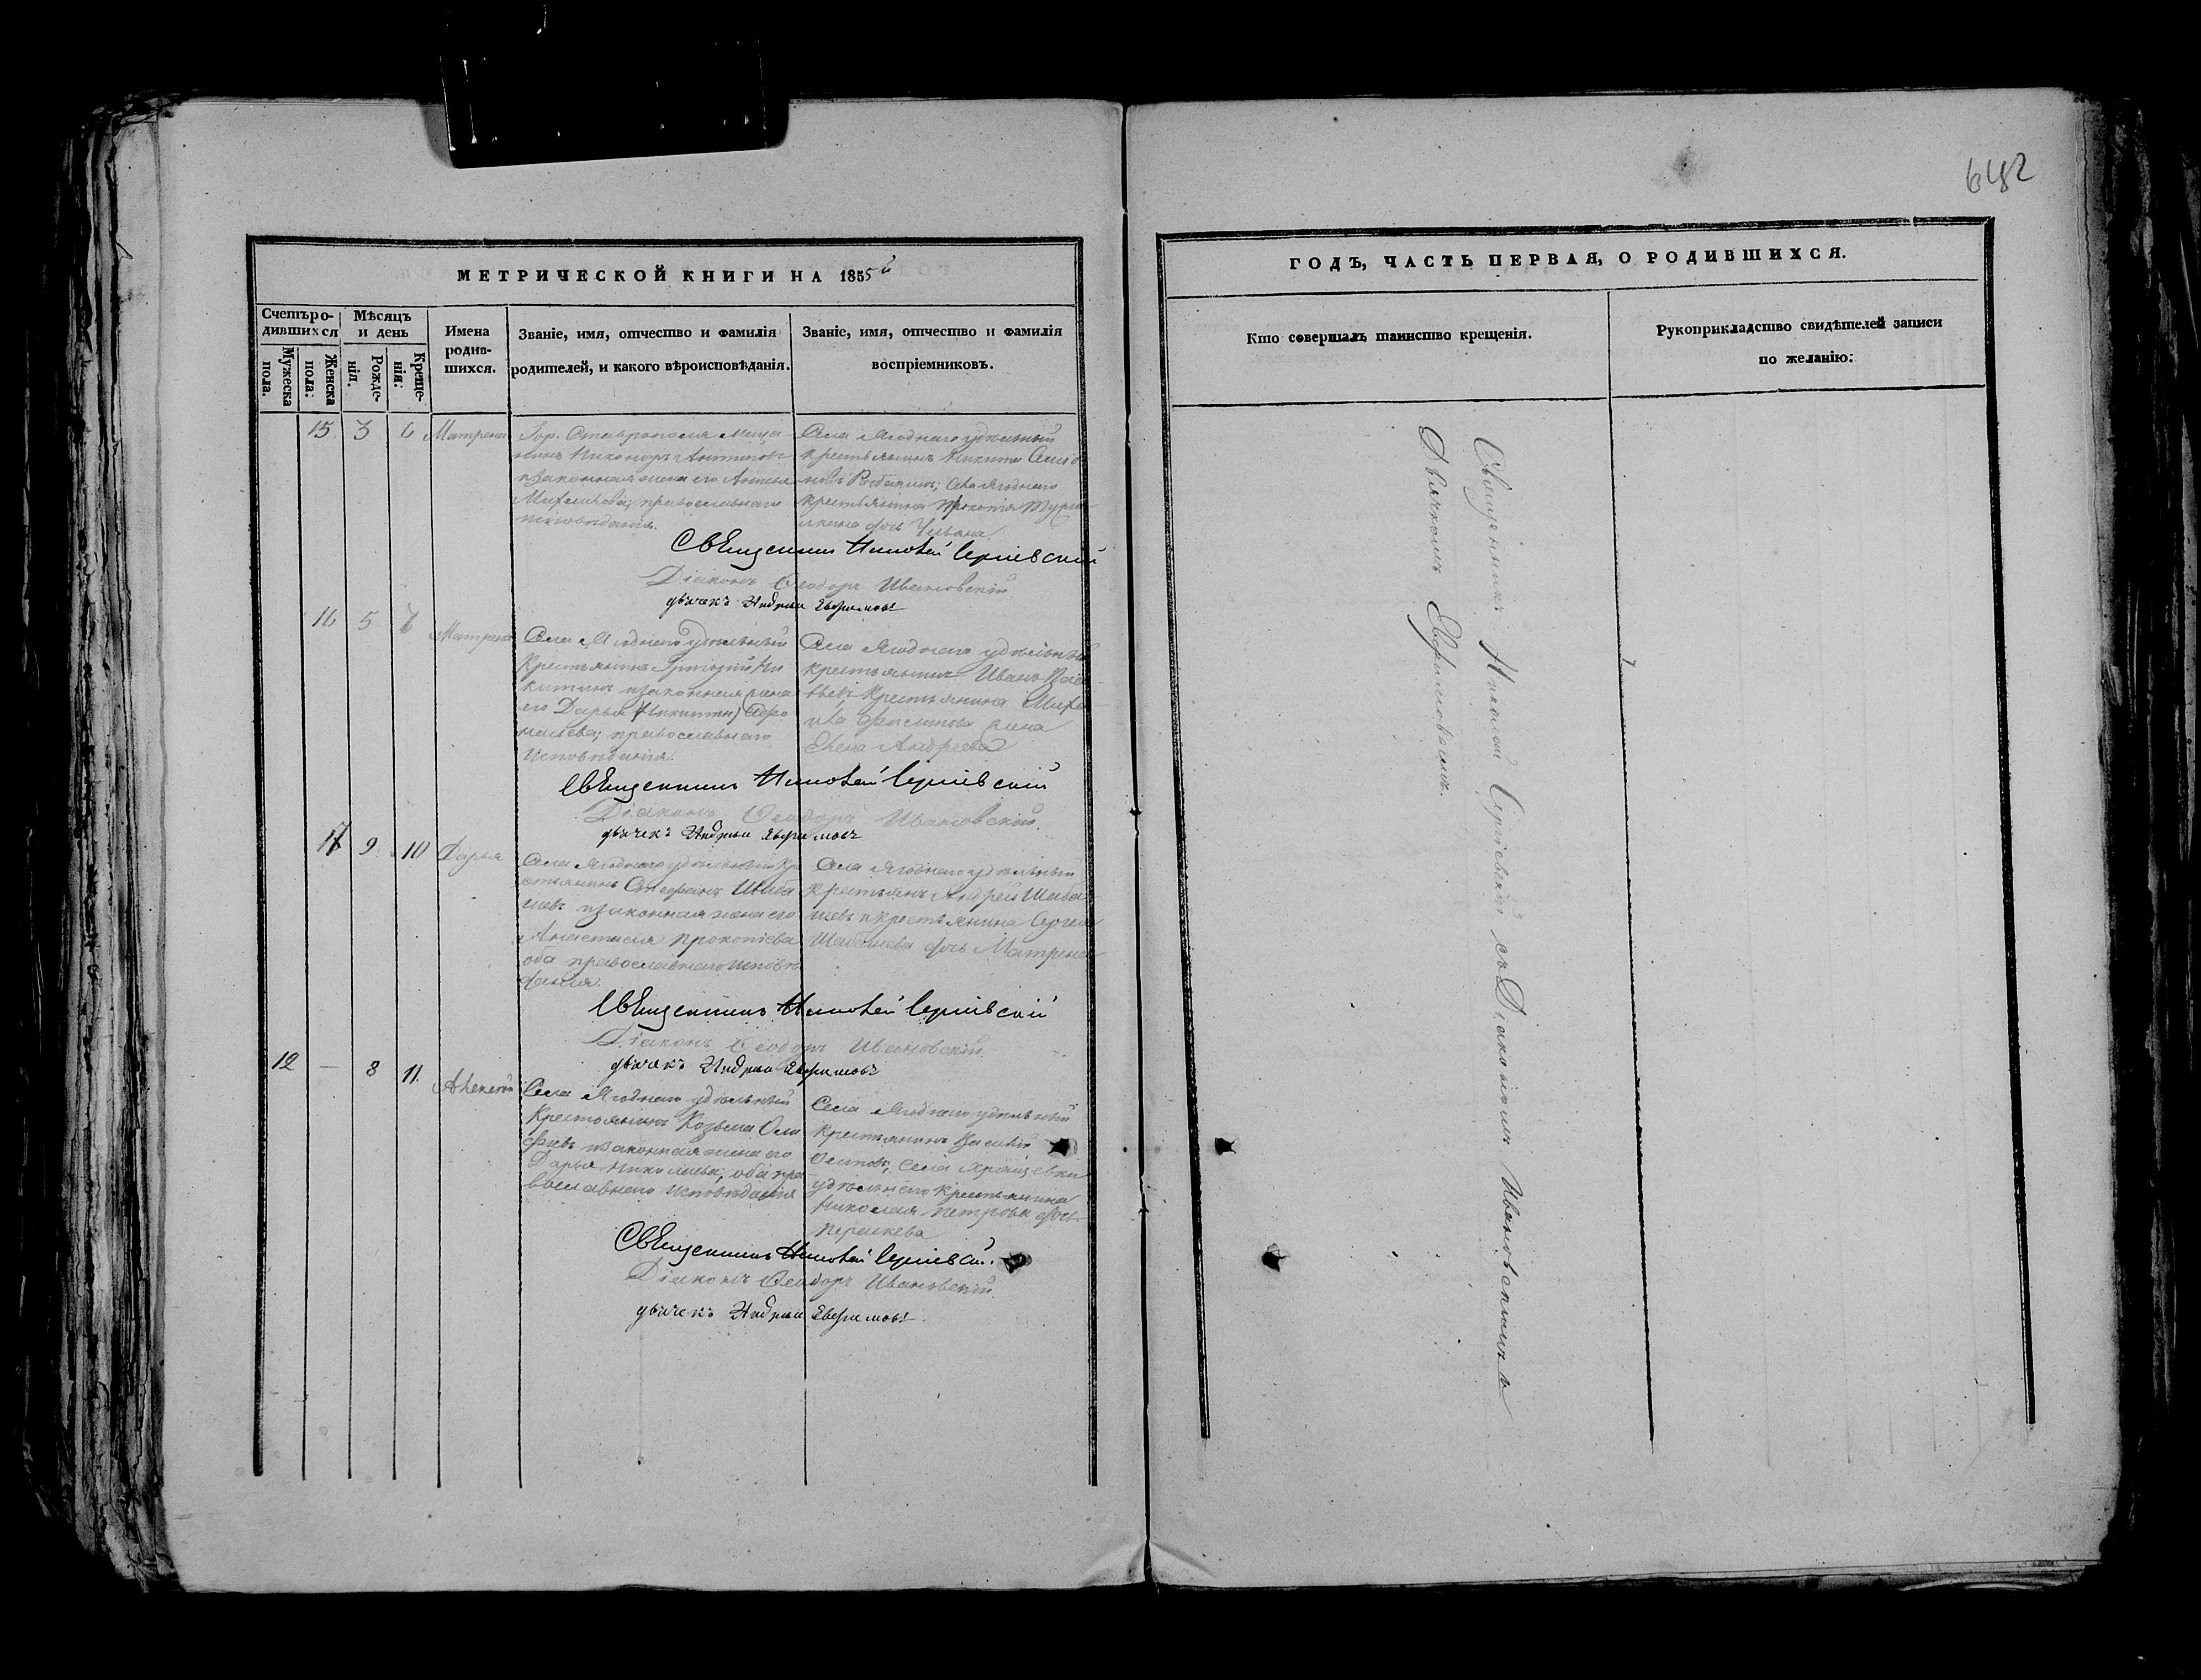 642
МЕТРИЧЕСКОЙ КНИГИ НА 1855й
Счетъ ро-
дившихся
Мужеска
пола.
Женска
пола:
Мѣсяцъ
и день
Рожде-
нія.
Креще-
нія:
Имена
родив-
шихся.
Званіе, имя, отчество и фамилія
родителей, и какого вѣроисповѣданія.
Званіе, имя, отчество и фамилія
воспріемниковъ.
15 3 6 Матрена
Гор. Ставрополя меща
нинъ Никаноръ Антипов
и законная жена его
православнаго
исповѣданія.
Села Ягоднаго удѣльный
крестьянинъ Никита
Села Ягоднаго
крестьянина
дочь
Священникъ Николай Сергіевскій
Діаконъ Ѳеодоръ Ивановскій
дьячекъ Андрей Евфимовъ
16 5 6 Матрена
Села Ягоднаго удѣльный
Крестьянинъ Григорій Ни
китинъ и законная жена
его Дарья
православнаго
Исповѣданія.
Села Ягоднаго удѣльный
крестьянинъ Иванъ
крестьянина
Филипова жена
Елена Андреева
Священникъ Николай Сергіевскій
Діаконъ Ѳеодоръ Ивановскій.
дьячекъ Андрей Евфимовъ
17 9 10 Дарья
Села Ягоднаго удѣльный Кр
стьянинъ Стефанъ Шаба
шевъ и законная жена его
Анастасія Прокопіева
оба православнаго исповѣ
данія.
Села Ягоднаго удѣльный
крестьянъ Андрей Шаба
шевъ и крестьянина Сергея
Шабашева дочь Матрена
Священникъ Николай Сергіевскій
Діаконъ Ѳеодоръ Ивановскій.
дьячекъ Андрей Евфимовъ
12 — 8 11. Алексей
Села Ягоднаго удѣльный
Крестьянинъ Козьма Оси
повъ и законная жена его
Дарья Николаева, оба пра
вославнаго исповѣданія
Села Ягоднаго удѣльный
крестьянинъ Василій
Осиповъ, села Хрящевки
удѣльнаго крестьянина
Николая Петрова дочь
Священникъ Николай Сергіевскій.
Діаконъ Ѳеодоръ Ивановскій.
дьячекъ Андрей Евфимовъ
ГОДЪ, ЧАСТЬ ПЕРВАЯ, О РОДИВШИХСЯ.
Кто совершалъ таинство крещенія.
Рукоприкладство свидѣтелей записи
по желанію:
Священникъ Николай Сергіевскій съ Діакономъ Ивановскимъ и
Дьячкомъ Евфимовымъ.